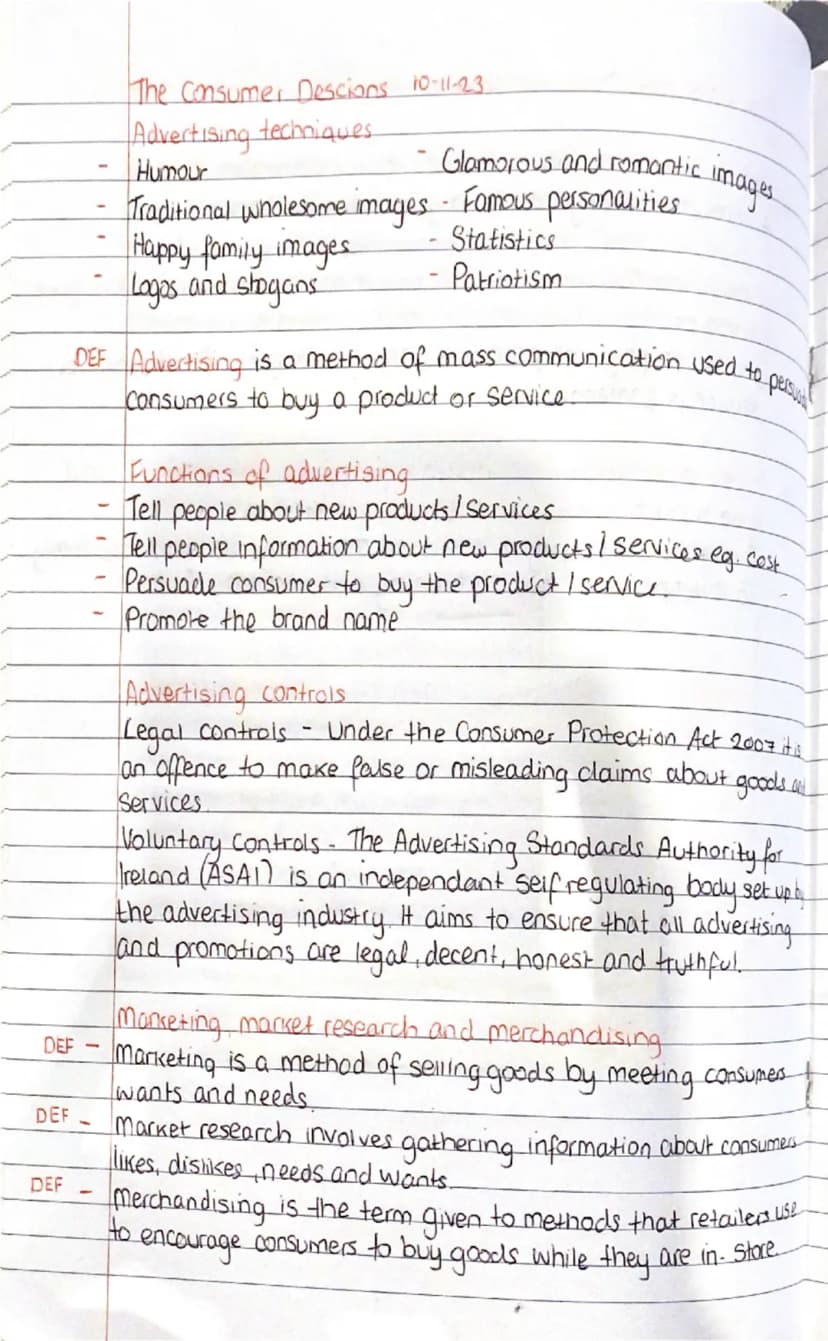 The Consumer Descions 10-11-23
Advertising techniques
- Humour - Glamorous and romantic images
- Traditional wholesome images - Famous personalities
- Happy family images - Statistics
- Logos and slogans - Patriotism
DEF Advertising is a method of mass communication used to persuade
consumers to buy a product or service.
Functions of advertising
- Tell people about new products/services
- Tell people information about new products/services eg. cost
- Persuade consumer to buy the product/service.
- Promote the brand name
Advertising controls
Legal controls - Under the Consumer Protection Act 2007 it is
an offence to make false or misleading claims about goods and
services.
Voluntary controls - The Advertising Standards Authority for
Ireland (ASAI) is an independant self regulating body set up by
the advertising industry. It aims to ensure that all advertising
and promotions are legal, decent, honest and truthful.
Marketing, market research and merchandising
DEF - Marketing is a method of selling goods by meeting consumers
wants and needs.
DEF - Market research involves gathering information about consumers
likes, dislikes, needs and wants.
DEF - Merchandising is the term given to methods that retailers use
to encourage consumers to buy goods while they are in-store.